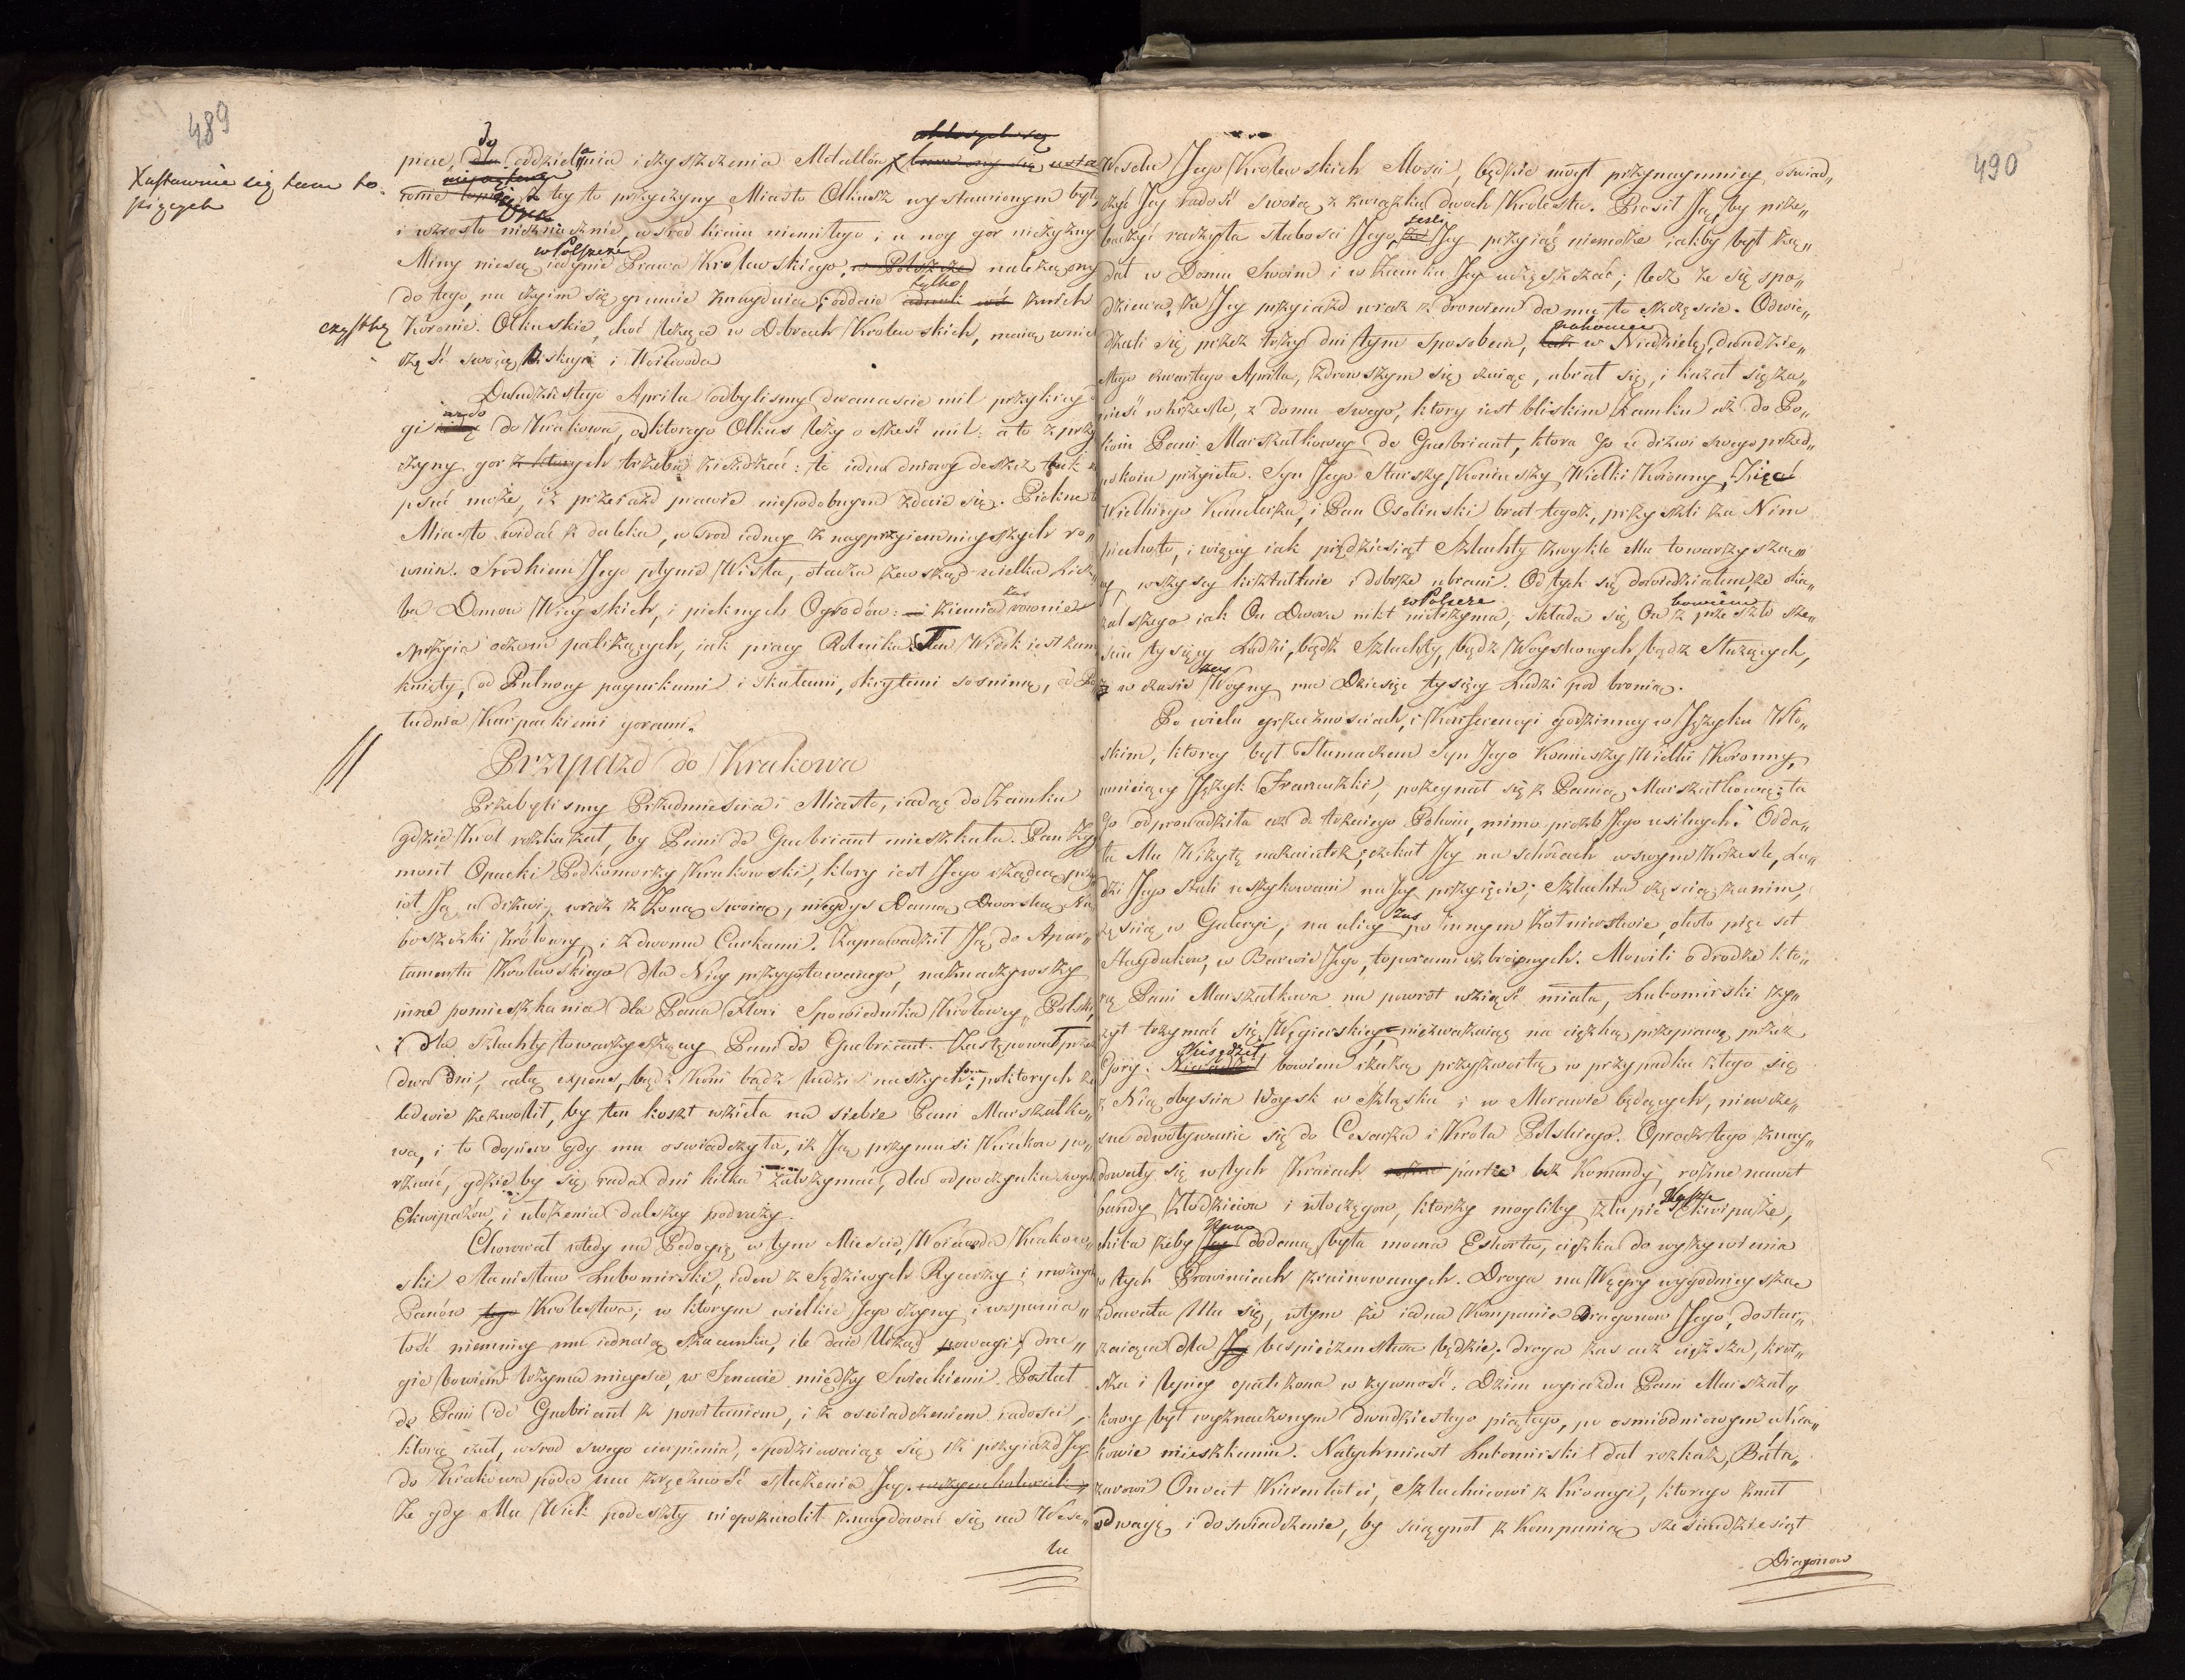 489
Xustawnie się tam to-
piących
piece, do oddzielania i czyszczenia Metallów X
z tey to przyczyny Miasto Olkusz wystawionym było
i wzrosło nieznacznie, wsrod kraiu niemiłego i u nog gor nieżyzny
Miny niesą w Polszcze iedynie Prawa Krolewskiego, należą ony
do tego, na czyim się gruncie znayduią; oddaie tylko z nich
cząstkę Koronie. Olkuskie, choć leżące w Dobrach Krolewskich, maią w nich
część swoią Biskup i Woiewoda
Dwudziestego Aprila odbylismy dwanascie mil przykrey
gi aż do Krakowa, od ktorego Olkus leży o sześć mil: a to z przy
czyny gor z ktorych trzeba zieżdżać: te ieden dniowy deszcz tak
psuć może, iż przeiazd prawie niepodobnym zdaie się. Piekne
Miasto widać z daleka, wsrod iedney z nayprzyiemnieyszych ro„
wnin. Srodkiem Jego płynie Wisła, otacza zewsząd wielka licz„
ba Domow Wieyskich, i pieknych Ogrodów: ziemia zas rownie
sprzyia oczom patrzących, iak pracy Rolnika. Ten Widok iest zam
knięty, od Pulnocy pagurkami i skałami, okrytemi sosniną, od Po
ludnia Karpackiemi gorami.
Przyjazd do Krakowa
Przebylismy Przedmiescia i Miasto, iadąc do Zamku
gdzie Krol rozkazał, by Pani de Guebriant mieszkała. Pan Zyg
mont Opacki Podkomorzy Krakowski, ktory iest Jego rządcą, przy
iął Ją u drzwi, wraz z Zoną swoią, niegdys Damą Dworską Nie
boszczki Krolowy, i z dwoma Curkami. Zaprowadził Ją do Apar„
tamentu Krolewskiego dla Niey przygotowanego, naznaczywszy
inne pomieszkania dla Pana Flori Spowiednika Krolowey Polski,
i dla Szlachty towarzyszącey Pani de Guebriant. Zastępował przez
dwa dni, całą expens, bądź Koni bądź ludzi naszych; po ktorych za
ledwie zezwolił, by ten koszt wzieła na siebie Pani Marszałko„
wa, i to dopiero gdy mu oswiadczyła, iż Ją przymusi Krakow po„
rzucić, gdzie by się rada dni kilka zatrzymać, dla odpoczynku swych
Ekwipażów, i ułożenia dalszey podruży.
Chorował wtedy na Pedogrę, w tym Miescie, Woiewoda Krakow„
ski Stanisław Lubomirski, ieden z Sędziwych Rycerzy i możnych
Panów Krolestwa; w ktorym wielkie Jego czyny i wspania„
łość niemniey mu iednaią szacunku, ile daie Urząd powagi; dru„
gie bowiem trzyma mieysce, w Senacie między Swieckiemi. Posłał
do Pani de Guebriant z powitaniem, i z oswiadczeniem radosci,
ktorą czuł, wsrod swego cierpienia, spodziewaiąc się iż przyiazd Jey
do Krakowa poda mu zręczność służenia Jey.
Ze gdy Mu Wiek podeszły niepozwolił znaydować się na Wese„
lu
490
Weselu Jego Krolewskich Mosci, będzie mogł przynaymniey oswiad„
czyć Jey radość swoią z związku dwoch Krolestw. Prosił Ją, by prze„
baczyć raczyła słabosci Jego, jesli Jey przyiąć niemoże iakby był żą„
dał w Domu Swoim i w Zamku Jey uczęszczać; lecz że się spo„
dziewa, że Jey przyiazd wraz z zdrowiem da mu to szczęscie. Odwie„
dzali się przez trzy dni tym sposobem, nakoniec w Niedzielę, dwudzie„
stego czwartego Aprila, zdrowszym się czuiąc, ubrał się, i kazał się za„
nieść w krzesle, z domu swego, ktory iest bliskim Zamku aż do Po„
koiu Pani Marszałkowey de Guebriant, ktora Go u drzwi swego przed„
pokoiu przyieła. Syn Jego Starszy, Koniuszy Wielki Koronny, Zięć
Wielkiego Kanclerza, i Pan Osolinski brat tegoż, przyszli za Nim
piechoto, i więcey iak pięćdziesiąt Szlachty zwykle Mu towarzyszą„
cy, wszyscy kształtnie i dobrze ubrani. Od tych się dowiedziałem, że oka„
zalszego iak On Dworu nikt w Polszcze nietrzyma; składa się On bowiem z prze szło sze„
sciu tysięcy Ludzi, bądź Szlachty, bądz Woyskowych, bądz Służących,
w czasie zas Woyny ma Dziesięc tysięcy Ludzi pod bronią.
Po wielu grzecznosciach, i Konferencyi godzinney w Języku Wło„
skim, ktorey był Tłumaczem Syn Jego Koniuszy Wielki Koronny,
umieiący Język Francuzki, pożegnał się z Panią Marszałkową; ta
Go odprowadziła aż do trzeciego Pokoiu, mimo prozb Jego usilnych. Odda„
ła Mu Wizytę nazaiutrz; czekał Jey na schodach w swym Krzesle, Lu„
dzi Jego stali uszykowani na Jey przyięcie; Szlachta częscią za nim,
częscią w Galeryi; na ulicy zas po innym żołnierstwie, około pięc set
Haydukow, w Barwie Jego, toporami uzbroionych. Mowili o drodze kto„
rą Pani Marszałkowa na powrot wziąść miała, Lubomirski ży„
czył trzymać się Węgierskiey, niezważaiąc na ciężką przeprawę przez
Gory. bowiem rzeką przyzwoitą w przypadku złego się
z Nią obyscia Woysk w Szląsku i w Morawie będących, niewcze„
sne odwoływanie się do Cesarza i Krola Polskiego. Oprocz tego znay„
dowały się w tych Kraiach partie bez Komandy, rożne nawet
bandy złodzieiow i włoczęgow, ktorzy mogliby złupić Nasze Ekwipaże,
chiba żeby Nam dodaną była mocna Eskorta, ciężka do wyżywienia
w tych Prowinciach zruinowanych. Droga na Węgry wygodnieysza
zdawała Mu się, w tym że iedna Kompania Dragonow Jego, dostar„
czaiąca dla bespieczenstwa będzie; droga zas acz cięższa, krot„
sza i lepiey opatrzona w żywność. Dzien wyiazdu Pani Marszał„
kowy był wyznaczonym dwudziestego piątego, po osmiodniowym w Kra„
kowie mieszkaniu. Natychmiast Lubomirski dał rozkaz, Balta„
zarowi Szlachcicowi z Kroacyi, ktorego znał
odwagę i doswiadczenie, by sciągnoł z Kompanią szesciudziesiąt
Dragonow